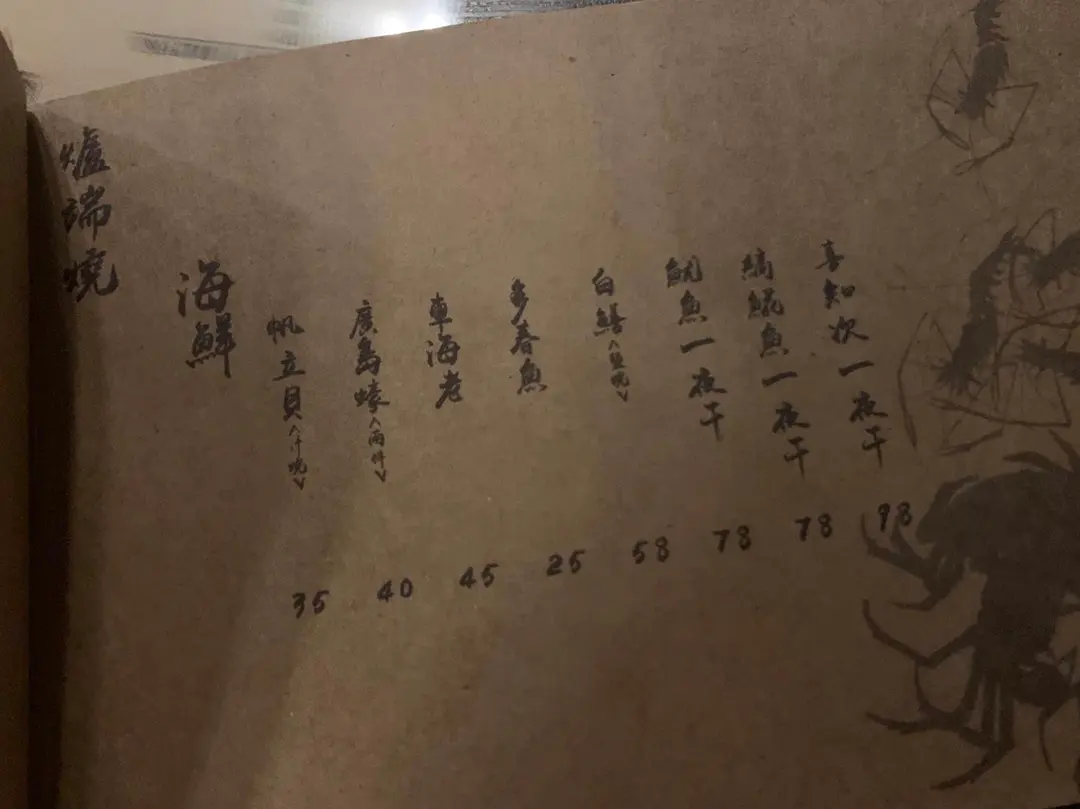 爐端燒
海鮮
帆立貝
35
廣島蠔<兩件>
40
車海老
45
多春魚
25
白鱔
58
魷魚一夜干
78
縞𩸽魚一夜干
78
喜知次一夜干
98